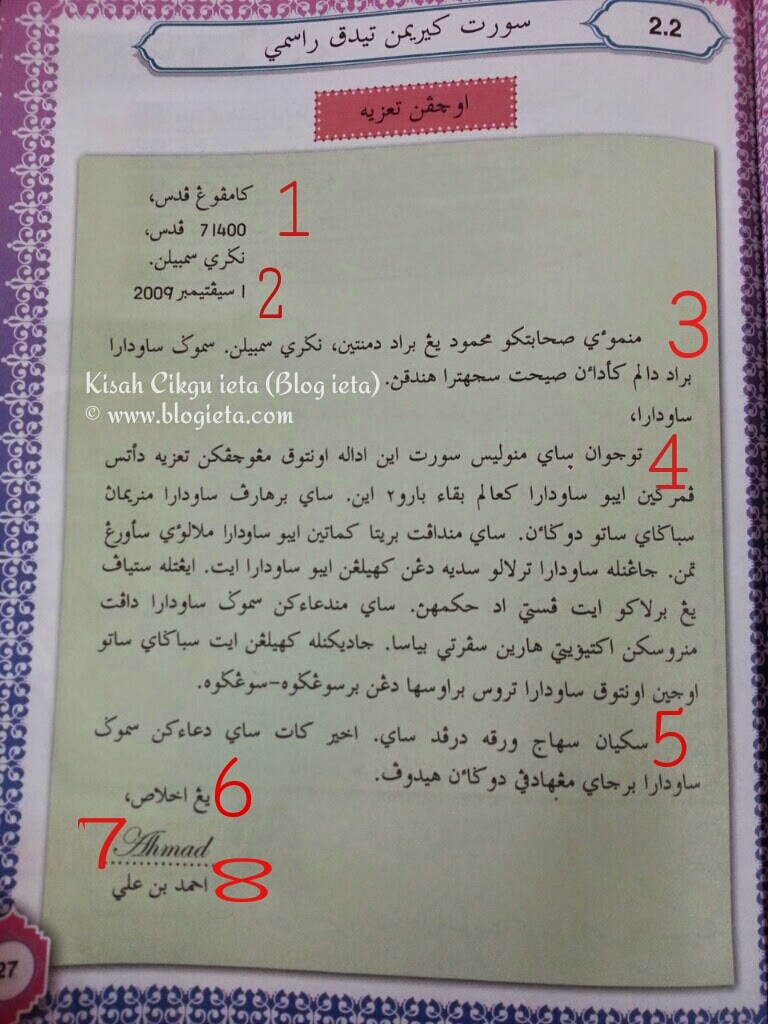 2.2
سورت كيريمن تيدق راسمي
اوچڤن تعزيه
كامڤوڠ ڤدس،
71400 ڤدس،
نݢري سمبيلن.
1 سيڤتيمبر 2009
1
2
3
منموءي صحابتكو محمود يڠ براد دمنتين، نݢري سمبيلن. سموݢ ساودارا
براد دالم كأداءن صيحت سجهترا هندقڽ.
Kisah Cikgu ieta (Blog ieta)
© www.blogieta.com
ساودارا،
4
توجوان ساي منوليس سورت اين اداله اونتوق مڠوچڤكن تعزيه دأتس
ڤمرݢين ايبو ساودارا كعالم بقاء بارو٢ اين. ساي برهارڤ ساودارا منريماڽ
سباݢاي ساتو دوݢاءن. ساي منداڤت بريتا كماتين ايبو ساودارا ملالوءي سأورڠ
تمن. جاڠنله ساودارا ترلالو سديه دڠن كهيلڠن ايبو ساودارا ايت. ايڠتله ستياڤ
يڠ برلاكو ايت ڤستي اد حكمهڽ. ساي مندعاءكن سموݢ ساودارا داڤت
منروسكن اكتيۏيتي هارين سڤرتي بياسا. جاديكنله كهيلڠن ايت سباݢاي ساتو
اوجين اونتوق ساودارا تروس براوسها دڠن برسوڠݢوه-سوڠݢوه.
5
سكيان سهاج ورقه درڤد ساي. اخير كات ساي دعاءكن سموݢ
ساودارا برجاي مڠهادڤي دوݢاءن هيدوڤ.
6
يڠ اخلاص،
7
Ahmad
8
احمد بن علي
27